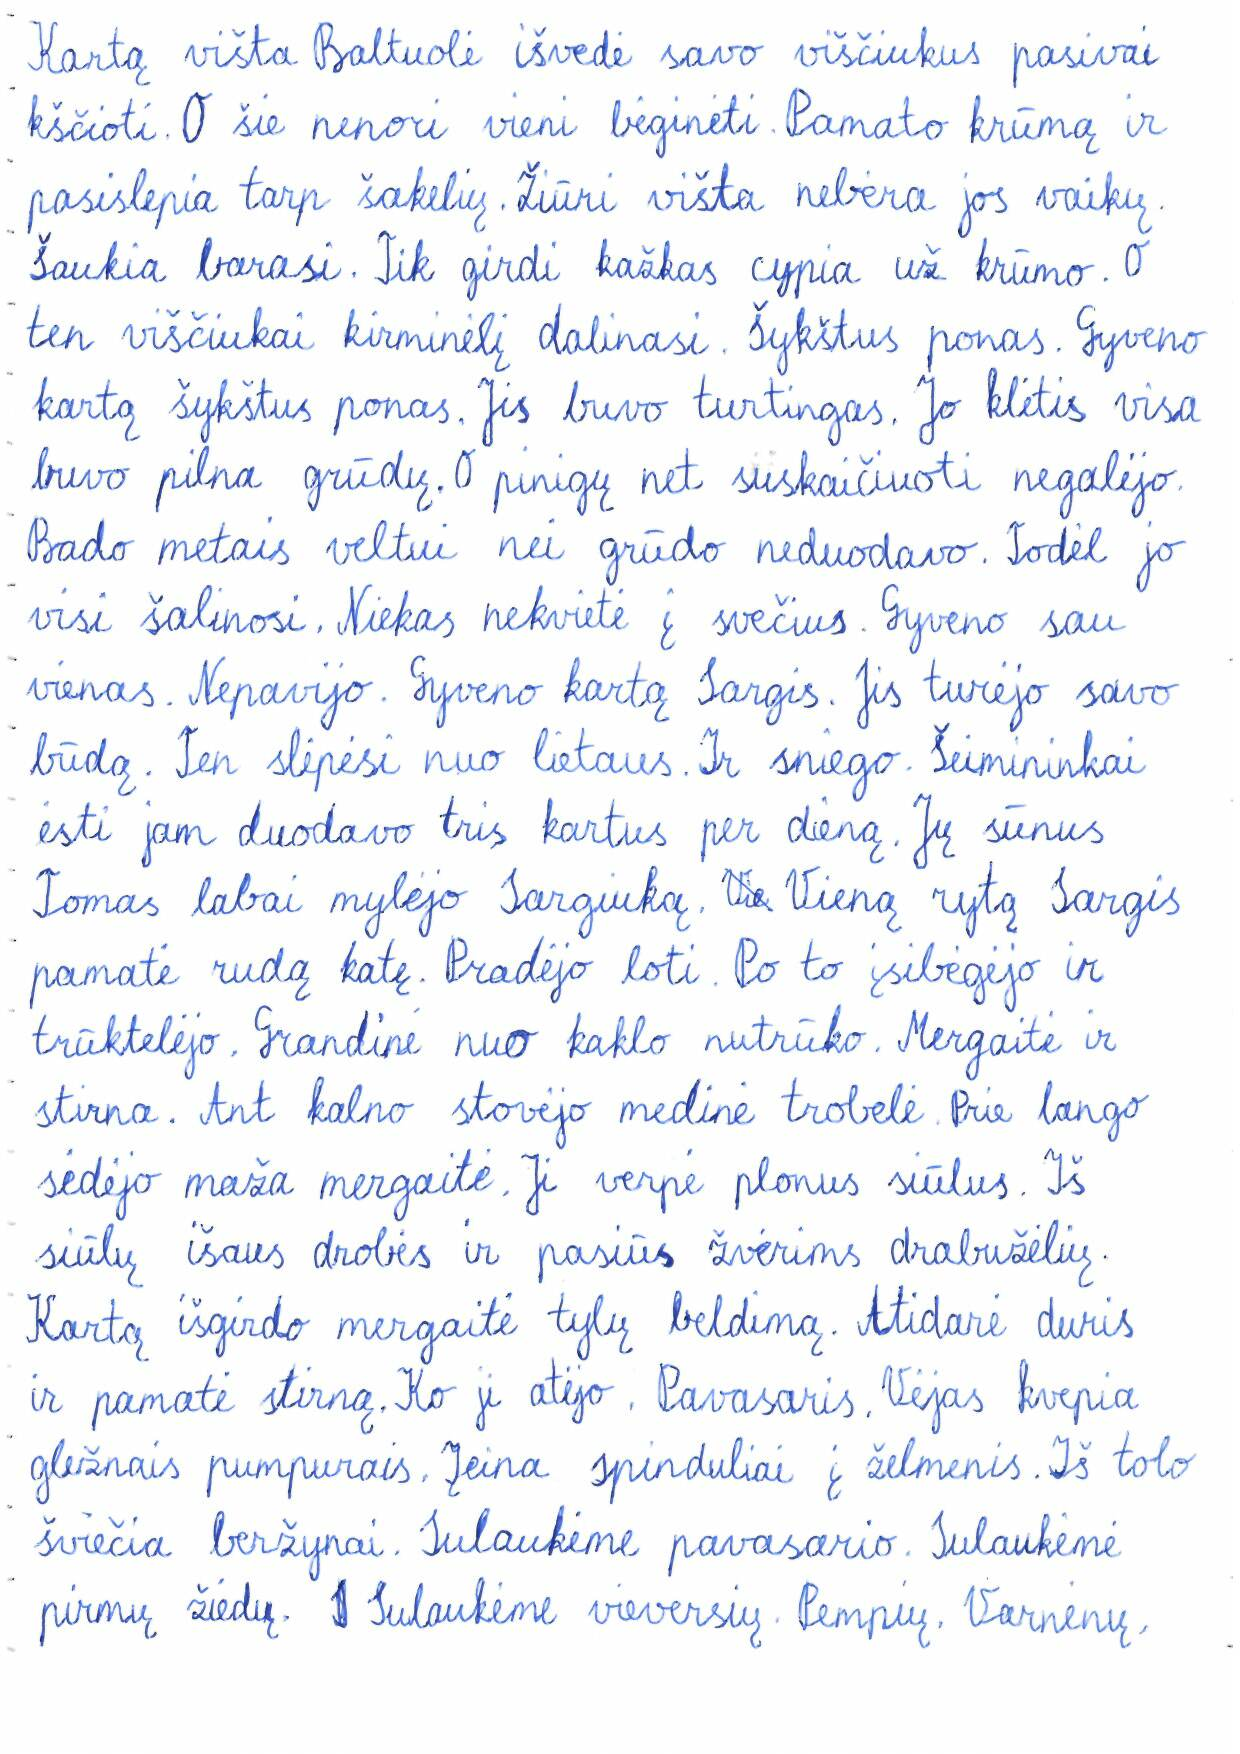 Kartą višta Baltuolė išvedė savo viščiukus pasivai
kščioti. O šie nenori vieni bėginėti. Pamato krūmą ir
pasislepia tarp šakelių. Žiūri višta nebėra jos vaikų.
Šaukia barasi. Tik girdi kažkas cypia už krūmo. O
ten viščiukai kirminėlį dalinasi. Šykštus ponas. Gyveno
kartą šykštus ponas. Jis buvo turtingas. Jo klėtis visa
buvo pilna grūdų. O pinigų net suskaičiuoti negalėjo.
Bado metais veltui nei grūdo neduodavo. Todėl jo
visi šalinosi. Niekas nekvietė į svečius. Gyveno sau
vienas. Nepavijo. Gyveno kartą Sargis. Jis turėjo savo
būdą. Ten slėpėsi nuo lietaus. Ir sniego. Šeimininkai
ėsti jam duodavo tris kartus per dieną. Jų sūnus
Tomas labai mylėjo Sargiuką. Vieną rytą Sargis
pamatė rudą katę. Pradėjo loti. Po to įsibėgėjo ir
trūktelėjo. Grandinė nuo kaklo nutrūko. Mergaitė ir
stirna. Ant kalno stovėjo medinė trobelė. Prie lango
sėdėjo maža mergaitė. Ji verpė plonus siūlus. Iš
siūlų išaus drobės ir pasiūs žvėrims drabužėlių.
Kartą išgirdo mergaitė tylų beldimą. Atidarė duris
ir pamatė stirną. Ko ji atėjo. Pavasaris. Vėjas kvepia
gležnais pumpurais. Įeina spinduliai į želmenis. Iš tolo
šviečia beržynai. Sulaukėme pavasario. Sulaukėmė
pirmų žiedų. Sulaukėme vieversių. Pempių. Varnėnų.